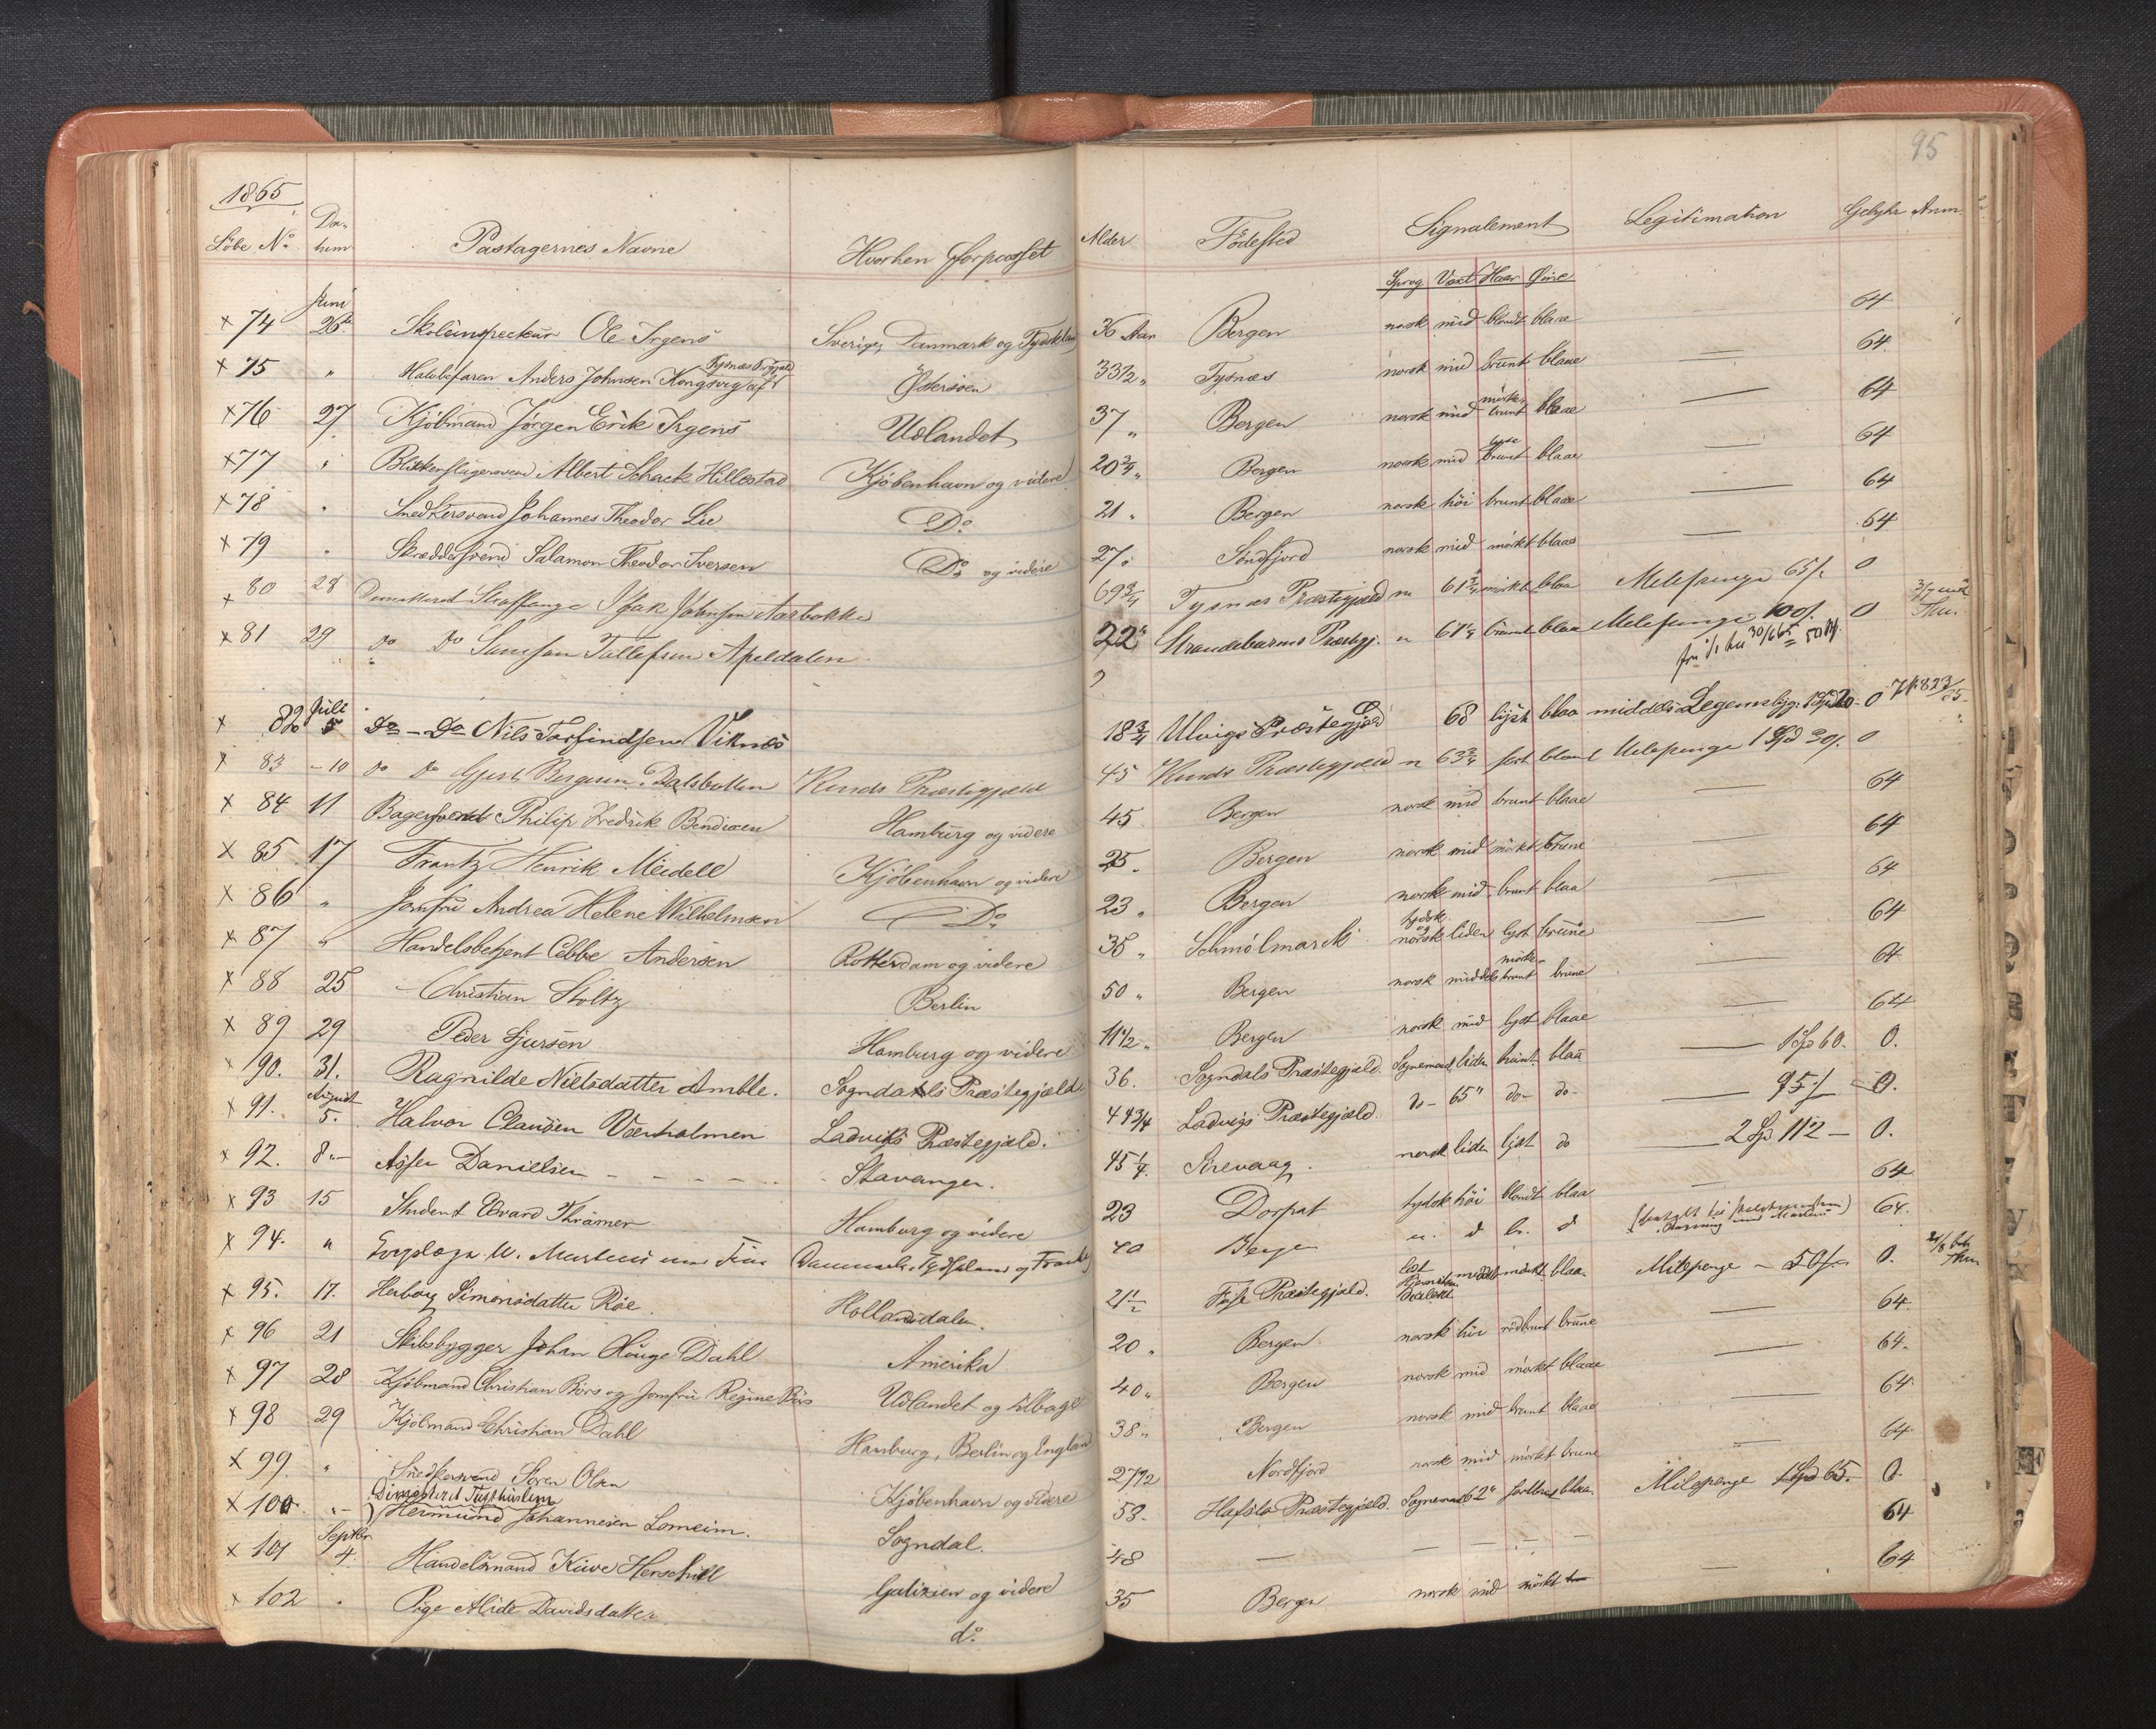 95
1865
Löbe No. Datum Passagernes Navne Hvorhen forpasset Alder Födested Signalement Legitimation Gebyhr Anm.
Sprog Væxt Haar Øine
Juni
x 74 26de Skoleinspecteur Ole Irgens Sverige, Danmark og Tydskland 36 Aar Bergen norsk mid blondt blaae 64
Tysnæs Prgjæld
x 75 " Halvbefaren Anders Johnsen Kongsvig af Östersöen 33½ " Tysnæs norsk mid brunt blaae — 64.
x 76 27 Kjöbmand Jörgen Erik Irgens Udlandet 37 " Bergen norsk mid mörkebrunt blaae — 64
x 77 " Blikkenslagersvend Albert Schack Hillestad Kjöbenhavn og videre 20¾ " Bergen norsk mid lysebrunt blaae — 64
x 78 " Snedkersvend Johannes Theodor Lie Do. 21 " Bergen norsk höi brunt blaae — 64
x 79 " Skrædersvend Salamon Theodor Iversen Do. og videre 27 " Söndfjord norsk mid mörkt blaae — 64
x 80 28 Straffange Isak Johnsen Aarbakke 69¾ Tysnæs Præstegjæld n 61¾ mörkt blaa Milepenge 65/. 0
x 81 29 do do Samson Tollefsen Apeldalen 22 Strandebarms Præstgj. n 67½ brunt blaa Milepenge 100/. 0
Juli
x 82 5 Do – Do Nils Torfindsen Viknæs 18¾ Ulvigs Præstegjæld 68 lyst blaa middels Legemsbyg. 0
x 83 – 10 do do Gjert Bergesen Dalsbotten Kinds Præstegjæld 45 Kinds Præstegjæld n 63¾ sort blaa Milepenge 1 Spd 30/. 0
x 84 11 Bagersvend Philip Fredrik Bendixen Hamburg og videre 45 Bergen norsk mid brunt blaae — 64
x 85 17 Frantz Henrik Meidell Kjöbenhavn og videre 25 " Bergen norsk mid mörkt brune — 64
x 86 " Jomfru Andrea Helene Wilhelmsen Do. 23 " Bergen norsk mid brunt blaa — 64
x 87 " Handelsbetjent Cebbe Andersen Rotterdam og videre 35 " Schmölmark tydsk og norsk liden lyst brune — 64
x 88 25 Christian Stoltz Berlin 50 " Bergen norsk middels mörkebrunt brune — 64
x 89 29 Peder Sjursen Hamburg og videre 11½ " Bergen norsk mid lyst blaae — 64
x 90. 31. Ragnilde Nielsdatter Amble. Sogndals Præstegjæld. 36. Sogndals Præstegjæld. liden brunt blaa — 1 Spd 60. 0.
August
x 91. 5. Halvor Clausen Værholmen Ladviks Præstegjæld. 44¾ Ladvigs Præstegjæld. do – 65" do – do – — 95/ – 0.
x 92. 8 – Asser Danielsen – – – – Stavanger. 45¼. Sirevaag. norsk liden lyst do — 2 Spd 112 – 0.
x 93 15 Student Edvard Thrämer Hamburg og videre 23 Dorpat tydsk höi blondt blaa — 64
x 94. " M. Danmark, Tydskland og Frankr. 40 Bergen 64.
x 95. 17. Herborg Simonsdatter Röe. Hollandsdalen. 21½ Præstegjæld. middels mörkt blaa. Milepenge – 50/ 0.
x 96 21 Skibsbygger Johan Hauge Dahl Amerika 20 " Bergen norsk höi rödbrunt brune — 64.
x 97 28 Kjöbmand Christian Börs og Jomfru Regine Börs Udlandet og tilbage 40 " Bergen norsk mid mörkt blaae — 64.
x 98 29 Kjöbmand Christian Dahl Hamburg, Berlin og England 38 " Bergen norsk mid brunt blaae — 64
x 99. " Snedkersvend Sören Olsen Kjöbenhavn og videre 27½ Nordfjord norsk mid mörkt brune — 64
Dimitteret Tugthuslem
x 100. " – Hermund Johannesen Lomeim. Sogndal. 53. Hafslo Præstegjæld. 62" blaa. Milepenge 1 Spd 65. – 0.
Septbr
x 101 4. Handelsmand Kiwe Herschell Galizien og videre 48 — — — — 64
x 102 " Pige Alide Davidsdatter do. 35 Bergen norsk mid mörkt — 64